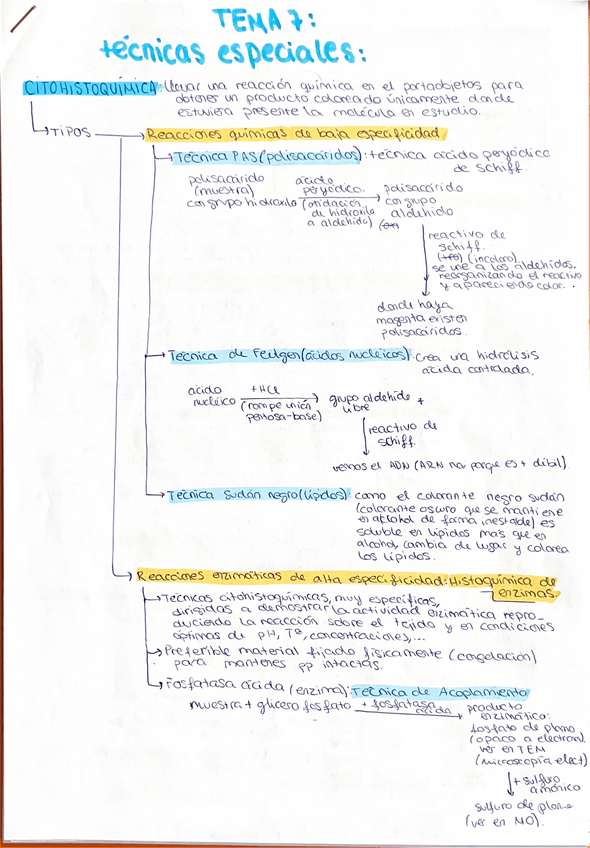 TEMA 7:
técnicas especiales:
CITOHISTOQUÍMICA: llevar una reacción química en el portaobjetos para
obtener un producto coloreado únicamente donde
estuviera presente la molécula en estudio.
TIPOS
Reacciones químicas de baja especificidad
Técnica PAS (polisacáridos): técnica ácido peryódico
de Schiff.
polisacárido
(muestra)
con grupo hidroxilo
ácido
peryódico
(oxidación
de hidroxilo
a aldehído)
polisacárido
con grupo
aldehído
reactivo de
schiff.
(incoloro)
se une a los aldehídos.
reorganizando el reactivo
y apareciendo color.
donde haya
magenta existen
polisacáridos.
Técnica de Feulgen (ácidos nucléicos): crea una hidrólisis
ácida controlada.
ácido
nucléico
+HCl
(rompe unión
pentosa-base)
grupo aldehído +
libre
reactivo de
schiff.
vemos el ADN (ARN no, porque es + débil)
Técnica Sudán negro (lípidos): como el colorante negro sudán
(colorante oscuro que se mantiene
en alcohol de forma inestable) es
soluble en lípidos más que en
alcohol, cambia de lugar y colorea
los lípidos.
Reacciones enzimáticas de alta especificidad: Histoquímica de
enzimas.
Técnicas citohistoquímicas, muy específicas,
dirigidas a demostrar la actividad enzimática repro-
duciendo la reacción sobre el tejido y en condiciones
óptimas de pH, Tª, concentraciones,...
Preferible material fijado físicamente (congelación)
para mantener pp intactas.
Fosfatasa ácida (enzima): Técnica de Acoplamiento
muestra + glicero fosfato
+ fosfatasa
ácida
producto
enzimático:
fosfato de plomo
(opaco a electrones)
ver en TEM
(microscopía elect)
+ sulfuro
amónico
sulfuro de plomo
(ver en MO).